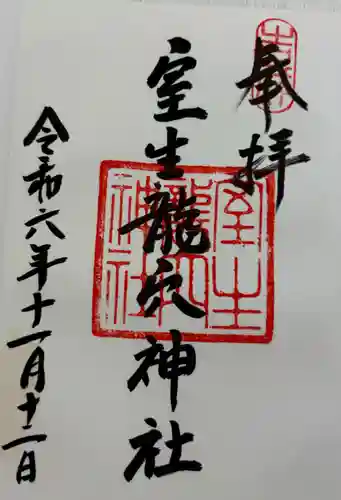 奉拝
室生龍穴神社
令和六年十一月十二日
室生
龍穴
神社